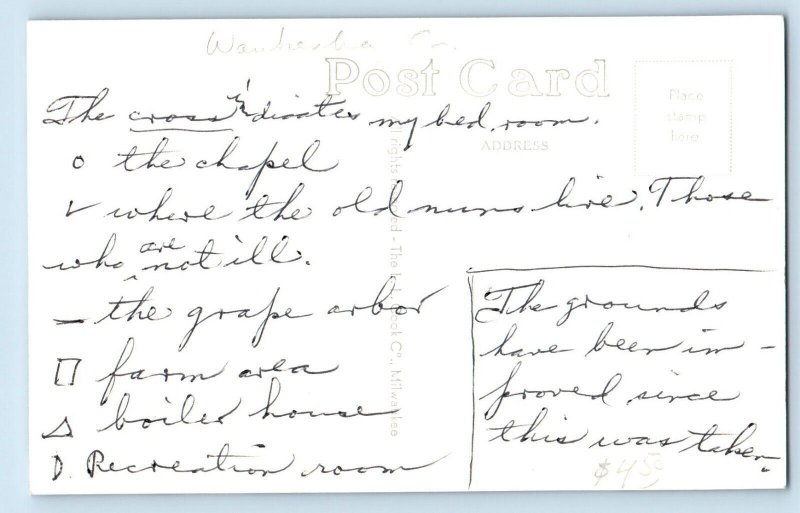 Waukesha Co.
Post Card
Place
stamp
here
ADDRESS
The cross indicates my bed room.
o the chapel
v where the old nuns live. Those
who are not ill.
— the grape arbor
□ farm area
△ boiler house
D. Recreation room
The grounds
have been im-
proved since
this was taken.
$4.50
All rights reserved - The L. L. Cook Co., Milwaukee